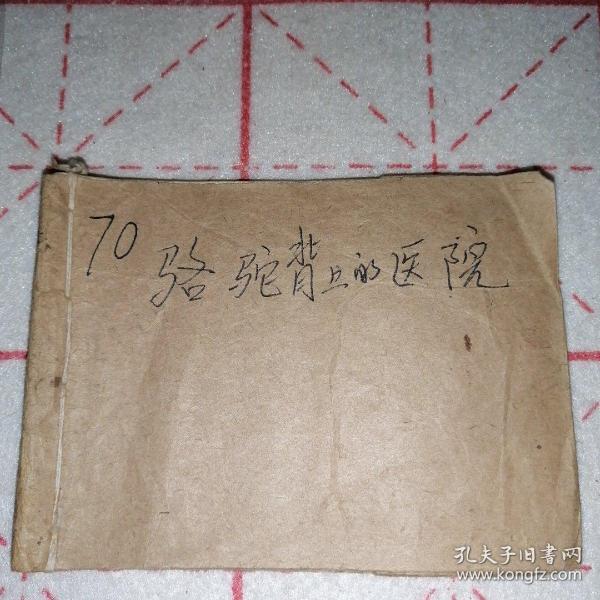 70
骆驼背上的医院
孔夫子旧書网
www.kongfz.com